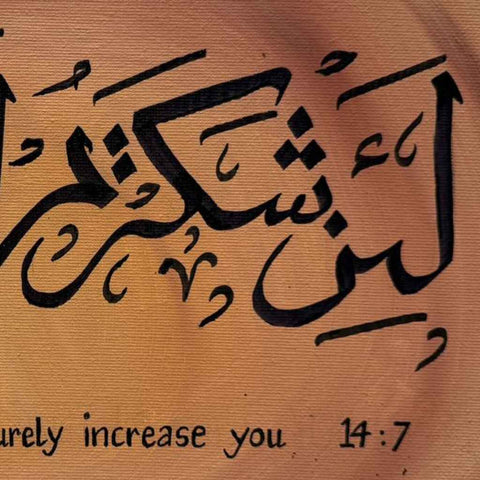 لَئِن شَكَرْتُمْ
urely increase you 14:7